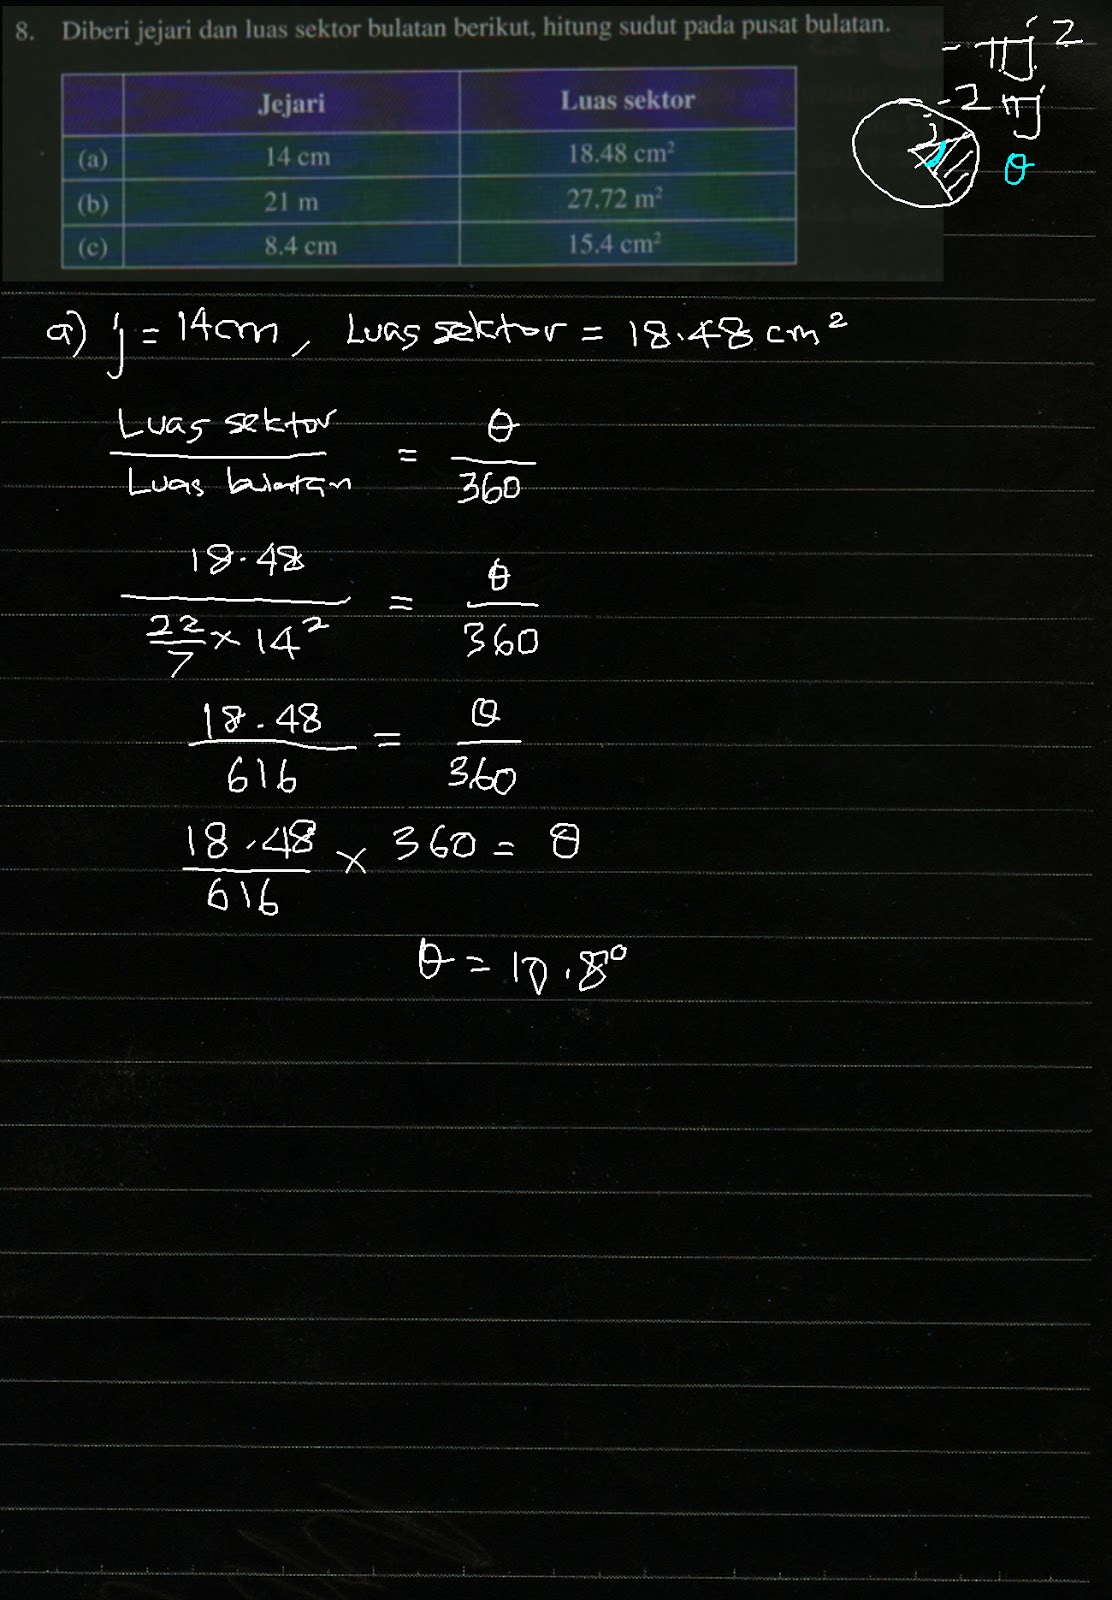 8. Diberi jejari dan luas sektor bulatan berikut, hitung sudut pada pusat bulatan.
- πj²
- 2πj
j
θ
Jejari Luas sektor
(a) 14 cm 18.48 cm²
(b) 21 m 27.72 m²
(c) 8.4 cm 15.4 cm²
a) j = 14cm, Luas sektor = 18.48 cm²
Luas sektor / Luas bulatan = θ / 360
18.48 / (22/7 × 14²) = θ / 360
18.48 / 616 = θ / 360
18.48 / 616 × 360 = θ
θ = 10.8°